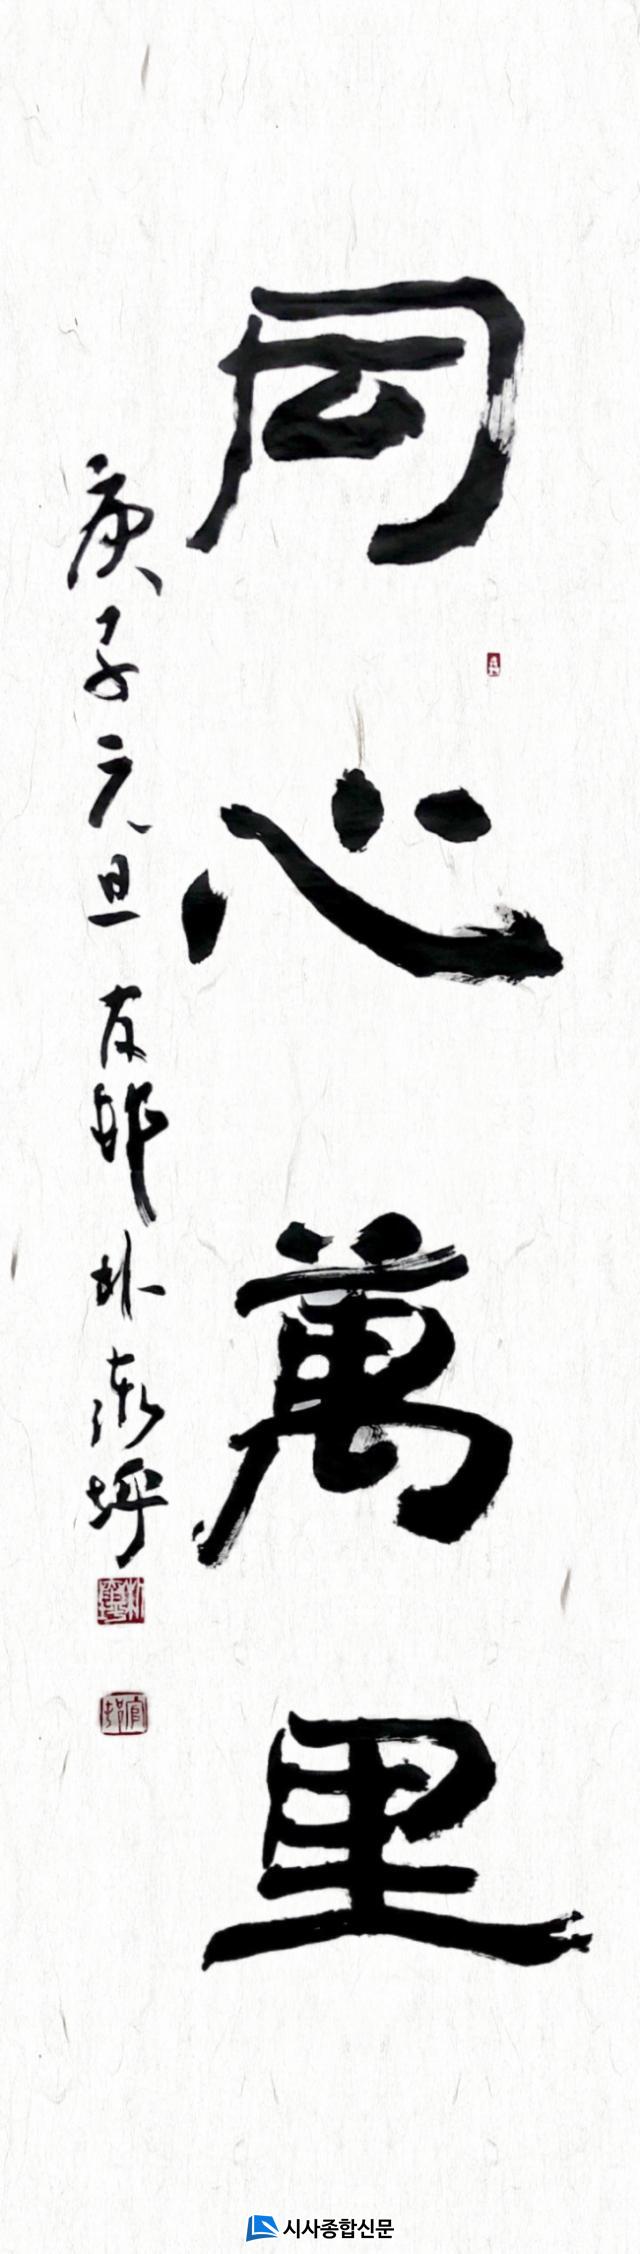 同心萬里
庚子元旦 友邨 朴東坪
시사종합신문